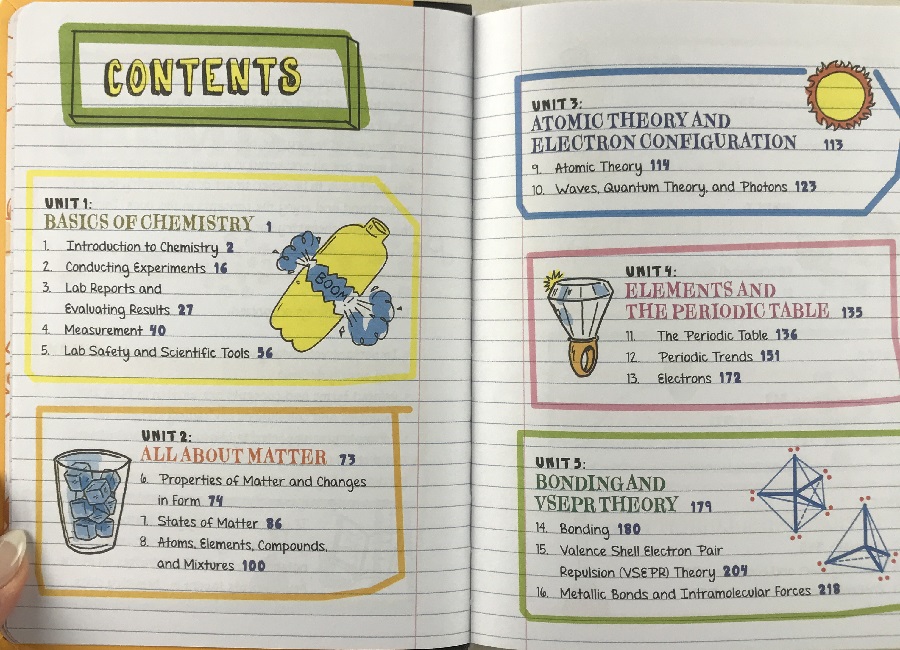 CONTENTS
UNIT 1:
BASICS OF CHEMISTRY 1
1. Introduction to Chemistry 2
2. Conducting Experiments 16
3. Lab Reports and
Evaluating Results 27
4. Measurement 40
5. Lab Safety and Scientific Tools 56
BOOM
UNIT 2:
ALL ABOUT MATTER 73
6. Properties of Matter and Changes
in Form 74
7. States of Matter 86
8. Atoms, Elements, Compounds,
and Mixtures 100
UNIT 3:
ATOMIC THEORY AND
ELECTRON CONFIGURATION 113
9. Atomic Theory 114
10. Waves, Quantum Theory, and Photons 123
UNIT 4:
ELEMENTS AND
THE PERIODIC TABLE 135
11. The Periodic Table 136
12. Periodic Trends 151
13. Electrons 172
UNIT 5:
BONDING AND
VSEPR THEORY 179
14. Bonding 180
15. Valence Shell Electron Pair
Repulsion (VSEPR) Theory 204
16. Metallic Bonds and Intramolecular Forces 218